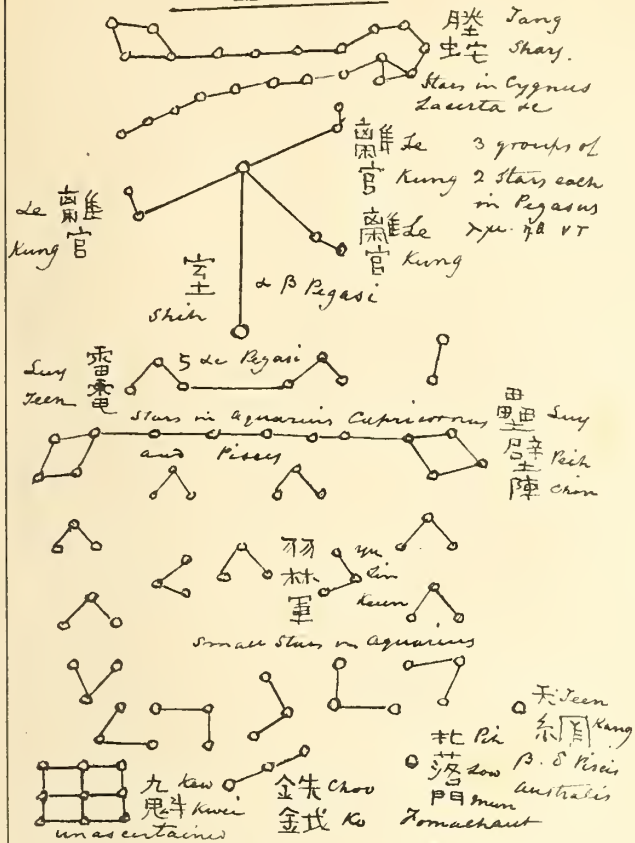 塍 Tang
蛇 Shay.
Stars in Cygnus
Lacerta &c
離 Le 3 groups of
官 Kung 2 Stars each
in Pegasus
離 Le λμ. ηθ ντ
官 Kung
Le 離
Kung 官
室
Shih
α β Pegasi
Luy 雷
Teen 電
5 &c Pegasi
Stars in Aquarius Capricornus
and Pisces
壘 Luy
壁 Peih
陣 Chin
羽 Yu
林 Lin
軍 Keun
Small Stars in Aquarius
天 Teen
綱 Kang
β. δ Piscis
Australis
北 Pih
落 Low
門 mun
Fomalhaut
九 Kew
魁 Kwei
unascertained
Choo
Ko